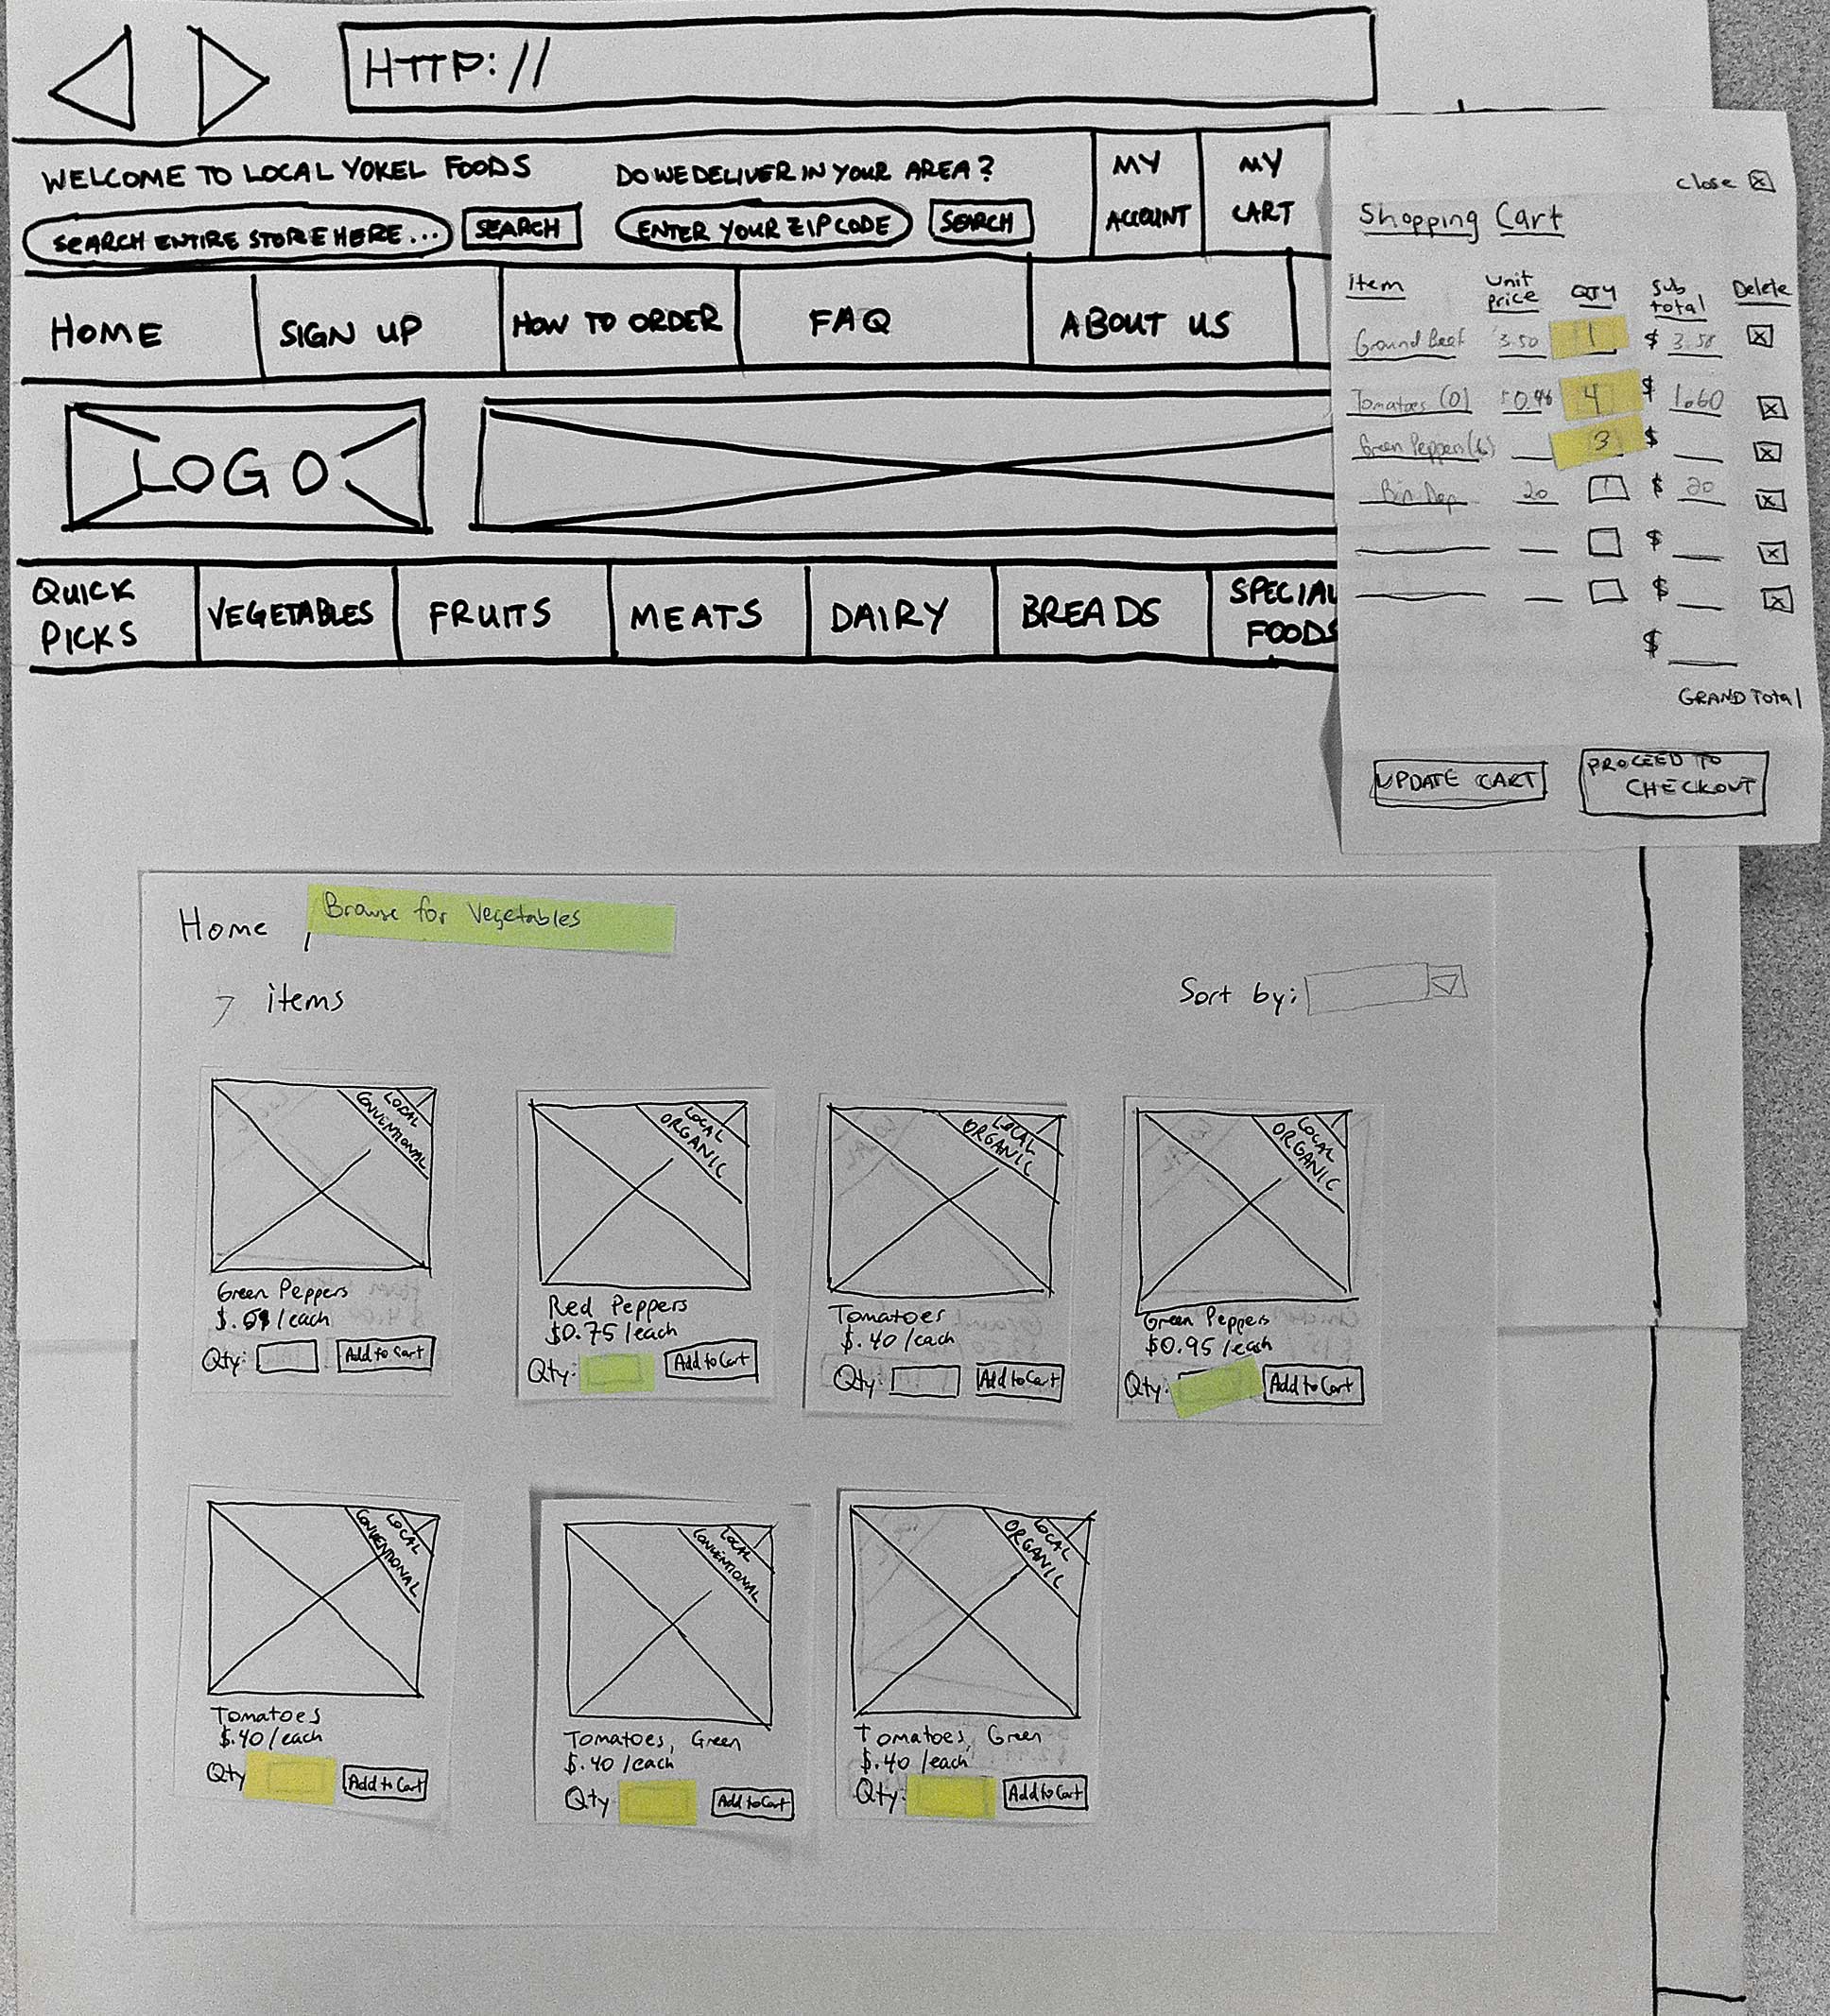 HTTP://
WELCOME TO LOCAL YOKEL FOODS
DO WE DELIVER IN YOUR AREA?
MY
ACCOUNT
MY
CART
SEARCH ENTIRE STORE HERE...
SEARCH
ENTER YOUR ZIP CODE
SEARCH
HOME
SIGN UP
HOW TO ORDER
FAQ
ABOUT US
LOGO
QUICK
PICKS
VEGETABLES
FRUITS
MEATS
DAIRY
BREADS
SPECIAL
FOODS
close X
Shopping Cart
Item Unit price QTY Sub total Delete
Ground Beef 3.50 1 $ X
Tomatoes (O) 4 $ 1.60 X
Green Peppers 3 $ X
20 1 $ 20 X
$ X
$ X
$
GRAND Total
UPDATE CART
PROCEED TO
CHECKOUT
Home, Browse for Vegetables
7 items
Sort by:
LOCAL
CONVENTIONAL
Green Peppers
/each
Qty: Add to Cart
LOCAL
ORGANIC
Red Peppers
$0.75 /each
Qty: Add to Cart
LOCAL
ORGANIC
Tomatoes
$.40 /each
Qty: Add to Cart
LOCAL
ORGANIC
Green Peppers
$0.95 /each
Qty: Add to Cart
LOCAL
CONVENTIONAL
Tomatoes
$.40 /each
Qty Add to Cart
LOCAL
CONVENTIONAL
Tomatoes, Green
$.40 /each
Qty Add to Cart
LOCAL
ORGANIC
Tomatoes, Green
$.40 /each
Qty: Add to Cart